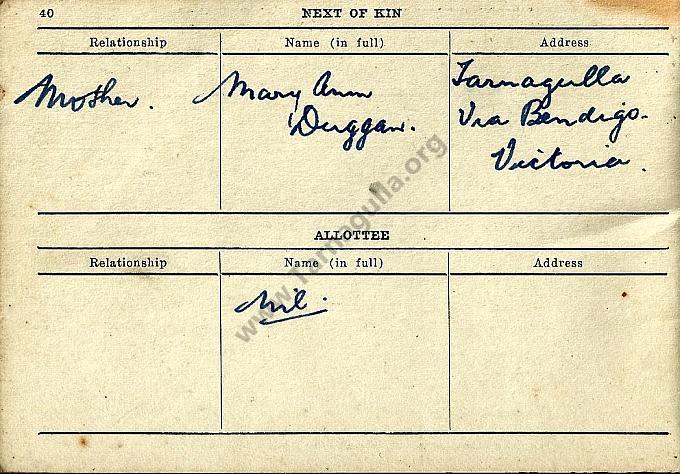 40
NEXT OF KIN
Relationship Name (in full) Address
Mother. Mary Ann Tarnagulla
Duggan. Via Bendigo.
Victoria.
ALLOTTEE
Relationship Name (in full) Address
Nil.
www.Tarnagulla.org